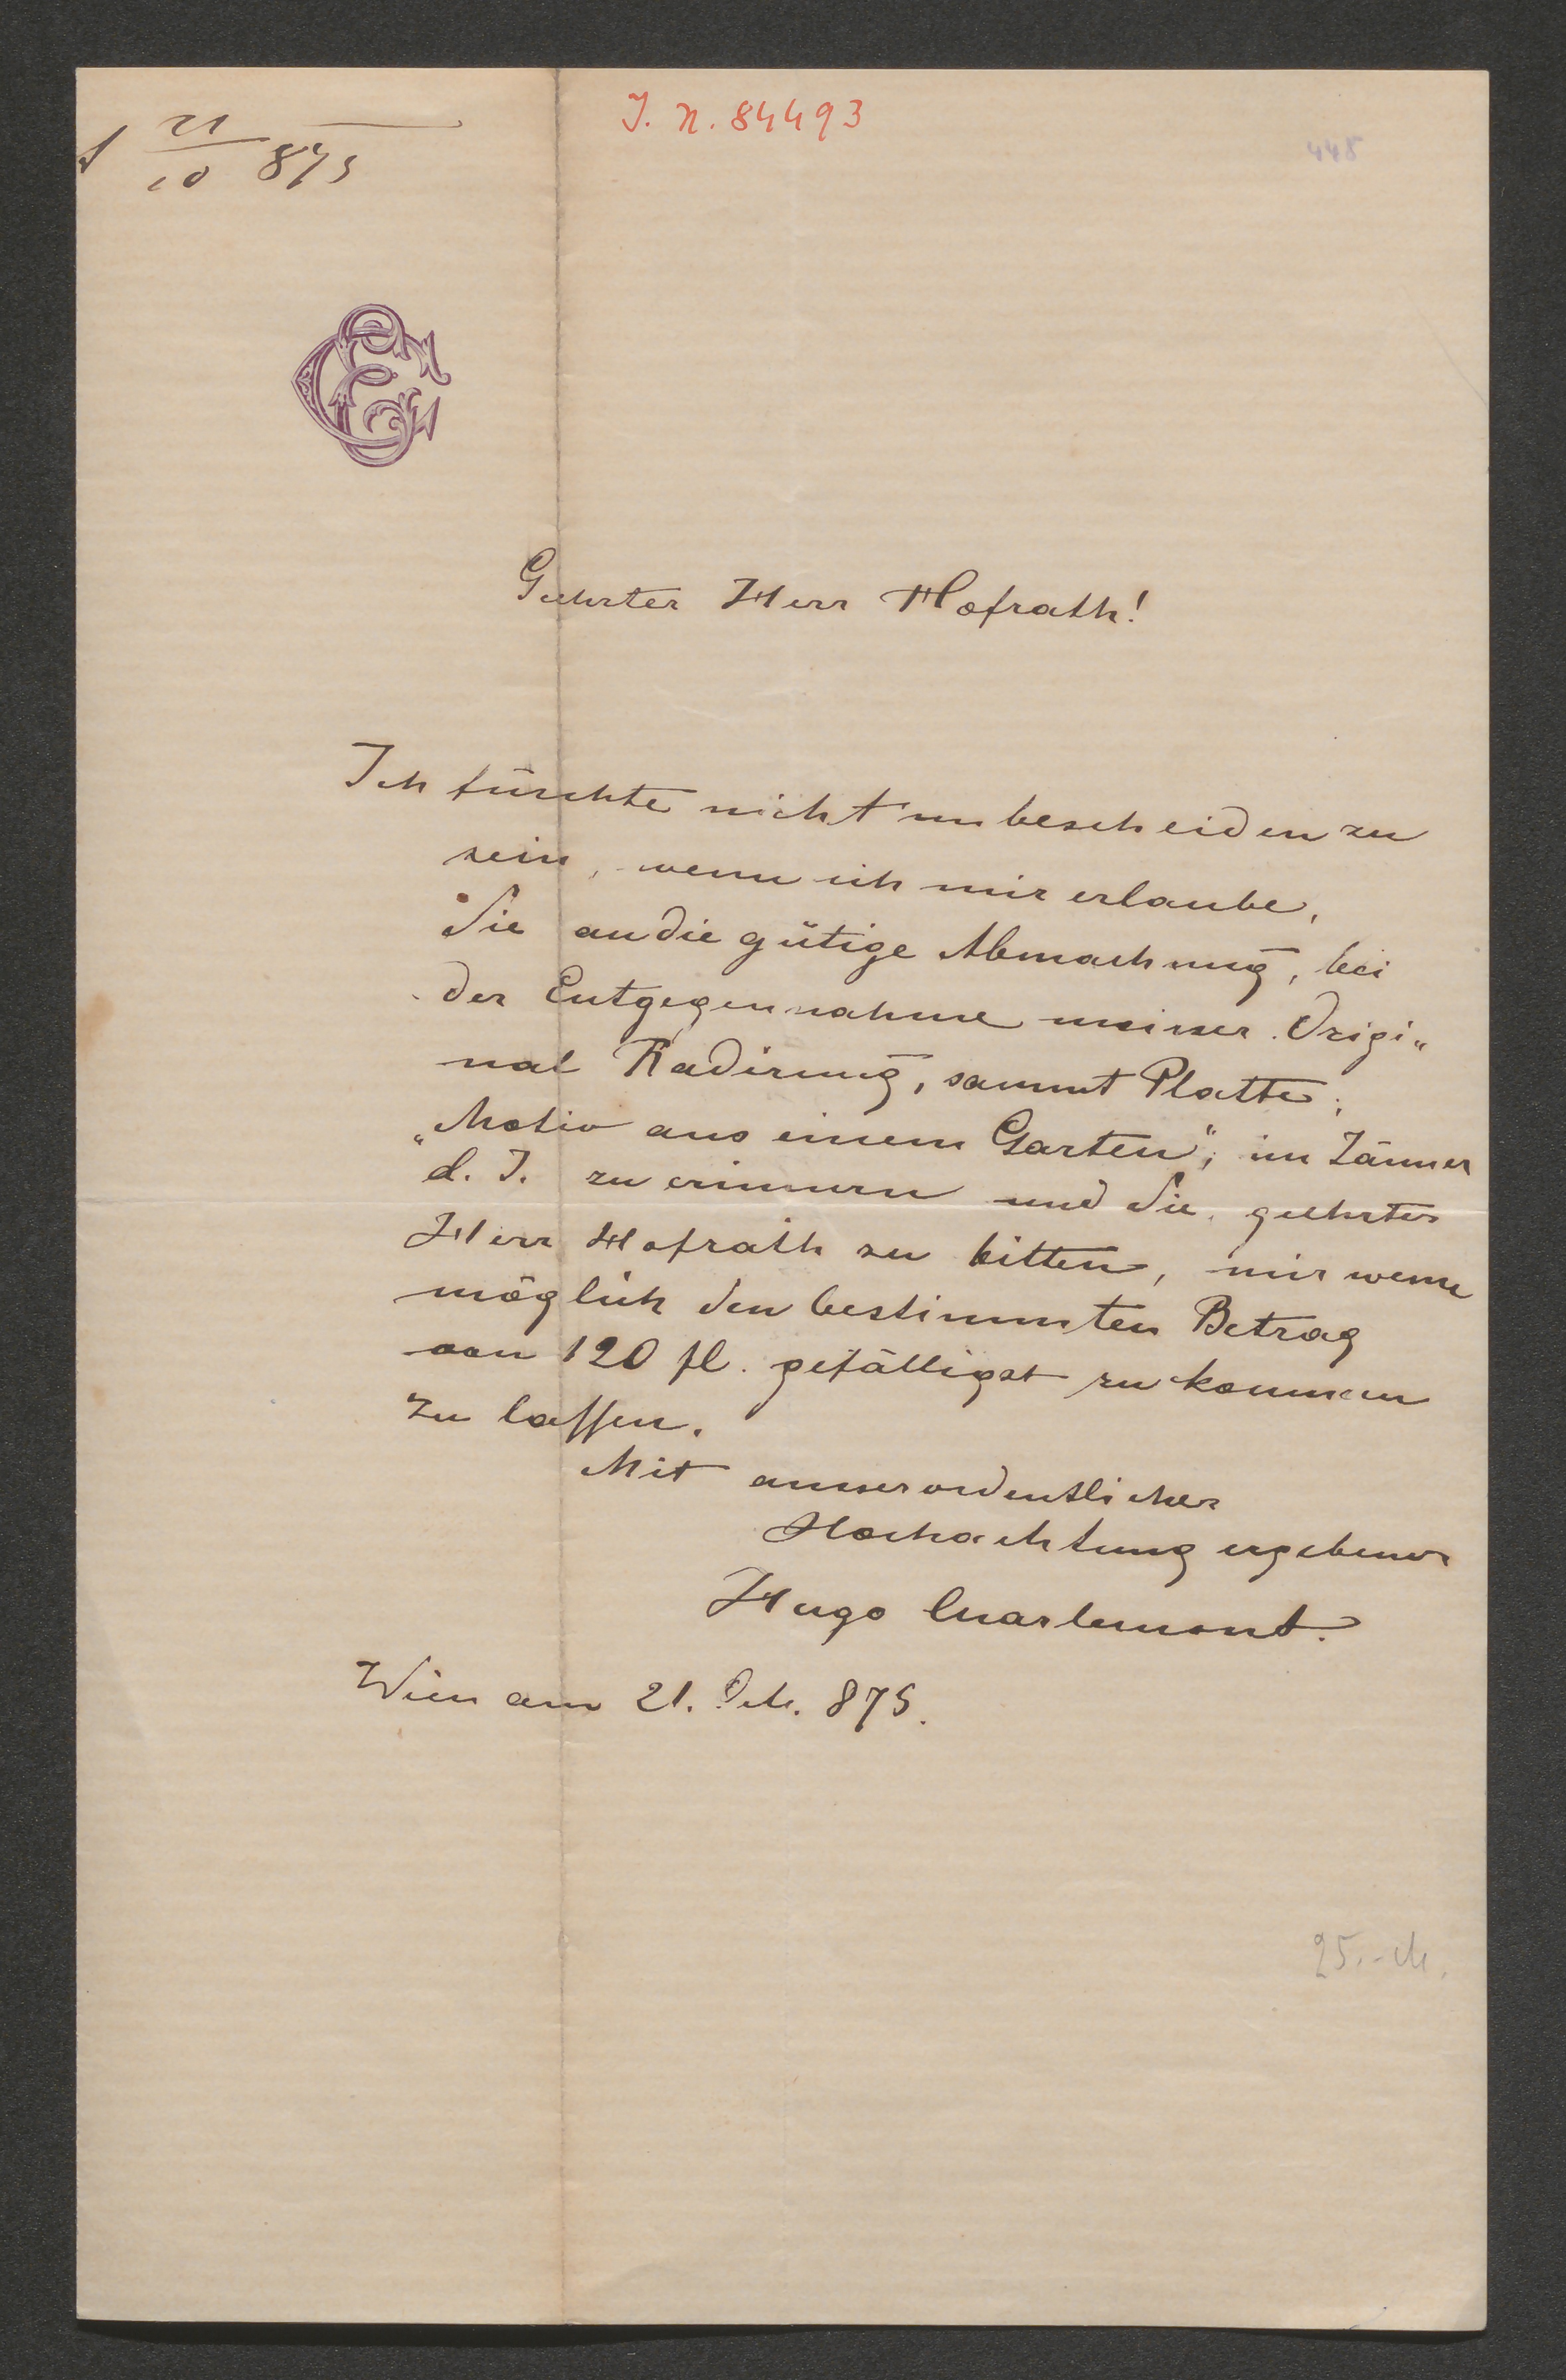 21/10 875
J. N. 84493
448
Geehrter Herr Hofrath!
Ich fürchte nicht unbescheiden zu
sein, wenn ich mir erlaube,
Sie an die gütige Abmachung, bei
der Entgegennahme meiner Origi„
nal Radirung, sammt Platte,
„Motiv aus einem Garten“, im Jänner
d. J. zu erinnern und Sie, geehrter
Herr Hofrath zu bitten, mir wenn
möglich den bestimmten Betrag
von 120 fl. gefälligst zu kommen
zu lassen.
Mit ausserordentlicher
Hochachtung ergebener
Hugo Charlemont.
Wien am 21. Oct. 875.
25.-M.